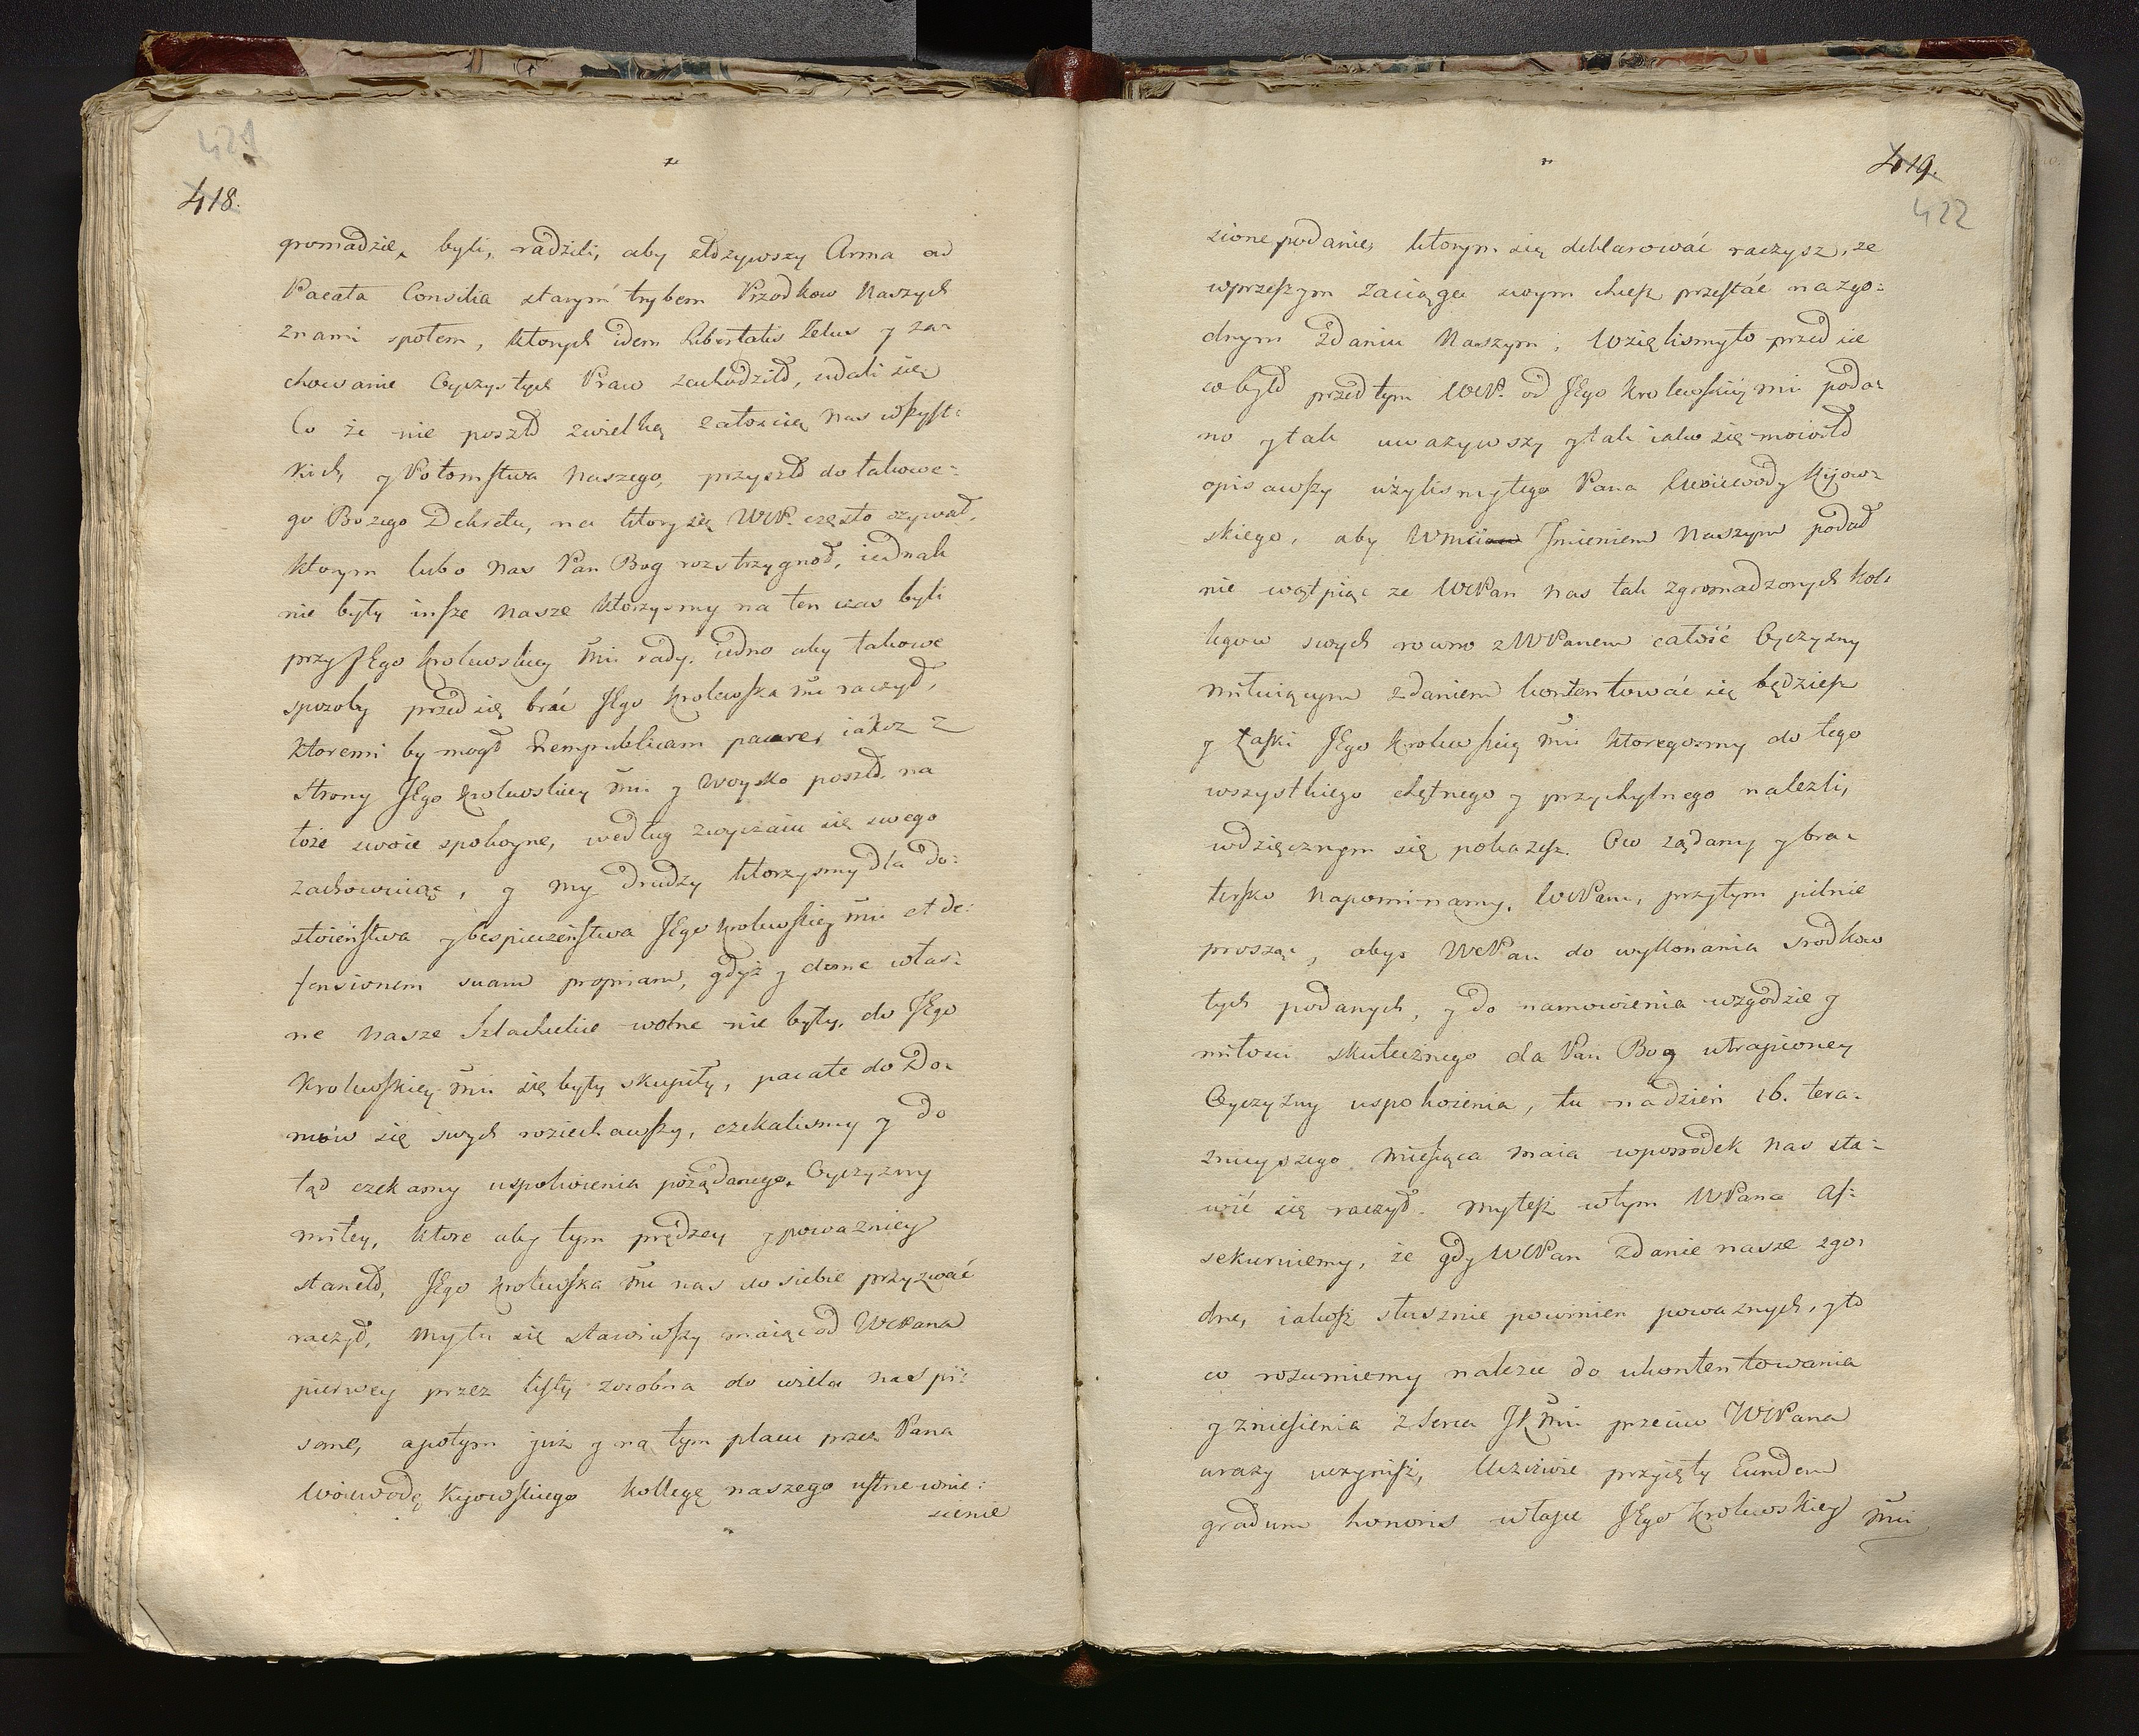 421
418.
gromadzie, byli, radzili, aby złożywszy Arma ad
Pacata Consilia starym trybem Przodkow Naszych
z nami społem, ktorych idem Libertatis Zelus y za-
chowanie Oyczystych Praw zachodziło, udali się,
Co że nie poszło z wielką żałością nas wszyst-
kich, y Potomstwa Naszego, przyszło do takowe-
go Bozego Dekretu, na ktory się WM. często ozywał,
ktorym lubo nas Pan Bog rozstrzygnoł, iednak
nie były insze nasze ktorzysmy na ten czas byli
przy JEgo Krolewskiey Mci rady, iedno aby takowe
sposoby przed się brać JEgo Krolewska Mć raczył,
ktoremi by mogł Rempublicam pacare, iakoz z
strony JEgo Krolewskiey Mci y Woysko poszło na
łoże swoie spokoyne, według zwyczaiu się swego
zachowuiąc, y my drudzy ktorzysmy dla do-
stoieństwa y bespieczeństwa JEgo Krolewskiey Mci et de-
fensionem suam propriam, gdyż y domy włas-
ne nasze Szlacheckie wolne nie były, do JEgo
Krolewskiey Mci się były skupiły, pacate do Do-
mów się swych roziechawszy, czekalismy y do
tąd czekamy uspokoienia pożądanego, Oyczyzny
miłey, ktore aby tym prędzey y powazniey
staneło, JEgo Krolewska Mć nas do siebie przyzwać
raczył, My tu się stawiwszy maiąc od WMPana
pierwey przez listy zosobna do wiela nas pi-
sane, a potym już y na tym placu przez Pana
Woiewodę Kijowskiego kollegę naszego ustne wnie-
sienie
419.
422
sione podanie, ktorym się deklarować raczysz, ze
w przeszym zaciągu swym chcesz przestać na zgo-
dnym zdaniu Naszym, Wzięlismy to przed sie
co było przed tym WM. od JEgo Krolewskiey Mci poda-
no y tak uwazywszy y tak iako się mowiło
opisawszy użylismy tego Pana Woiewody Kijow-
skiego, aby WMci Jmieniem Naszym podał
nie wątpiąc ze WMPan nas tak zgromadzonych Kol-
legow swych rowno z WMPanem całość Oyczyzny
miłuiącym zdaniem kontentować się będziesz
y Łaski JEgo Krolewskiey Mci ktoregosmy do tego
wszystkiego chętnego y przychylnego nalezli,
wdzięcznym się pokażesz. O co żądamy y bra-
tersko napominamy, WMPana, przytym pilnie
prosząc, abyś WMPan do wykonania srodkow
tych podanych, y do namowienia w zgodzie y
miłosci skutecznego da Pan Bog utrapioney
Oyczyzny uspokoienia, tu na dzień 16. tera-
znieyszego Miesiąca Maia w posrodek nas sta-
wić się raczył. My tesz w tym WMPana as-
sekuruiemy, że gdy WMPan zdanie nasze zgo-
dne, iakosz słusznie powinien powaznych, y to
co rozumiemy należec do ukontentowania
y zniesienia z serca JK Mci przeciw WMPana
urazy uczynisz, Uczciwie przyięty Eundem
gradum honoris w łasce JEgo Krolewskiey Mci